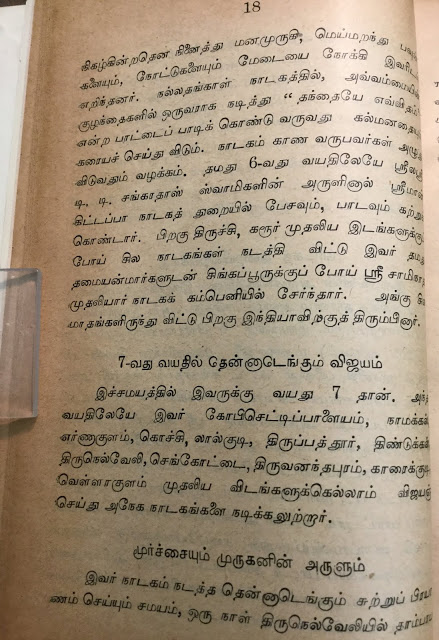 18
நிகழ்கின்றதென நினைத்து மனமுருகி, மெய்மறந்து
களையும், நோட்டுகளையும் மேடையை நோக்கி
எறிந்தனர். நல்லதங்காள் நாடகத்தில், அவ்வம்மையின்
குழந்தைகளில் ஒருவராக நடித்து “ தந்தையே
என்ற பாட்டைப் பாடிக் கொண்டு வருவது கல்மனதை
கரையச் செய்து விடும். நாடகம் காண வருபவர்கள் அழுது
விடுவதும் வழக்கம். தமது 6-வது வயதிலேயே
டி. டி. சங்காதாஸ் ஸ்வாமிகளின் அருளினால் ஸ்ரீமான்
கிட்டப்பா நாடகத் துறையில் பேசவும், பாடவும் கற்று
கொண்டார். பிறகு திருச்சி, கரூர் முதலிய இடங்களுக்கு
போய் சில நாடகங்கள் நடத்தி விட்டு இவர் தமது
தமையன்மார்களுடன் சிங்கப்பூருக்குப் போய் ஸ்ரீ சாமிநாத
முதலியார் நாடகக் கம்பெனியில் சேர்ந்தார். அங்கு
மாதங்களிருந்து விட்டு பிறகு இந்தியாவிற்குத் திரும்பினார்.
7-வது வயதில் தென்னாடெங்கும் விஜயம்
இச்சமயத்தில் இவருக்கு வயது 7 தான். அந்த
வயதிலேயே இவர் கோபிசெட்டிப்பாளையம், நாமக்கல்
எர்ணாகுளம், கொச்சி, லால்குடி, திருப்பத்தூர், திண்டுக்கல்
திருநெல்வேலி, செங்கோட்டை, திருவனந்தபுரம், காரைக்குடி
வெள்ளாகுளம் முதலிய விடங்களுக்கெல்லாம் விஜயஞ்
செய்து அநேக நாடகங்களை நடிக்கலுற்றார்.
மூர்ச்சையும் முருகனின் அருளும்
இவர் நாடகம் நடந்த தென்னாடெங்கும் சுற்றுப் பிரயா
ணம் செய்யும் சமயம், ஒரு நாள் திருநெல்வேலியில்